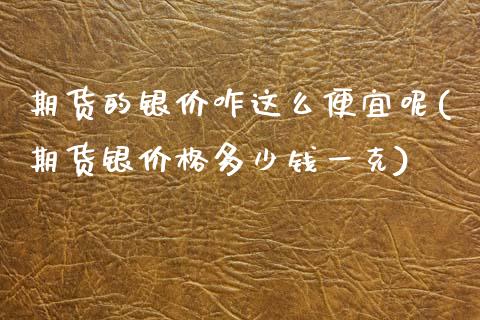 期货的银价咋这么便宜呢(
期货银价格多少钱一克)